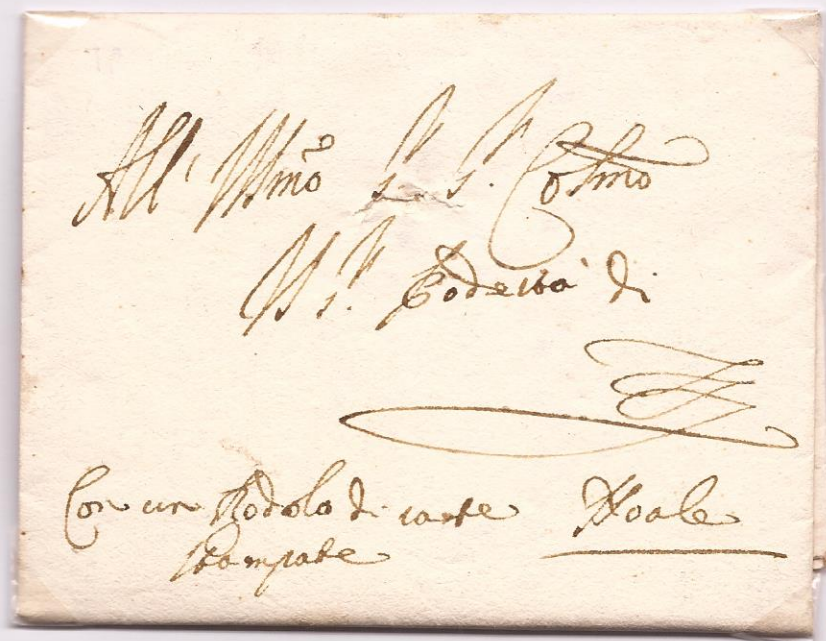 All' Illmo Sr. Sr. Colmo
Il Sr. Podestà di
Noale
Con un Rodolo di carte
stampate